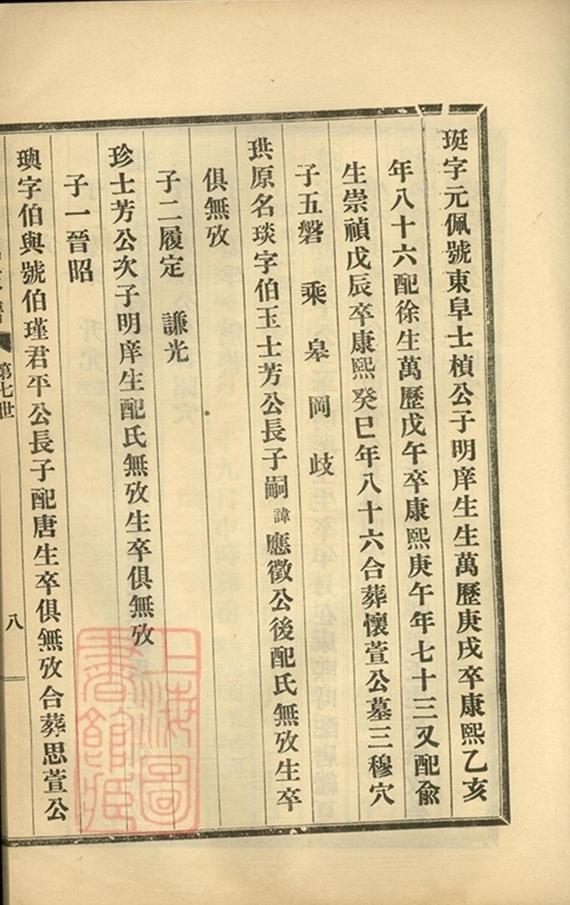 珽字元佩號東皐士楨公子明庠生生萬歷庚戌卒康熙乙亥
年八十六配徐生萬歷戊午卒康熙庚午年七十三又配兪
生崇禎戊辰卒康熙癸巳年八十六合葬懷萱公墓三穆穴
子五磐 乘 皋 岡 歧
珙原名琰字伯玉士芳公長子嗣諱應徵公後配氏無攷生卒
俱無攷
子二履定 謙光
珍士芳公次子明庠生配氏無攷生卒俱無攷
子一晉昭
璵字伯與號伯瑾君平公長子配唐生卒俱無攷合葬思萱公
第七世
八
上海圖書館藏